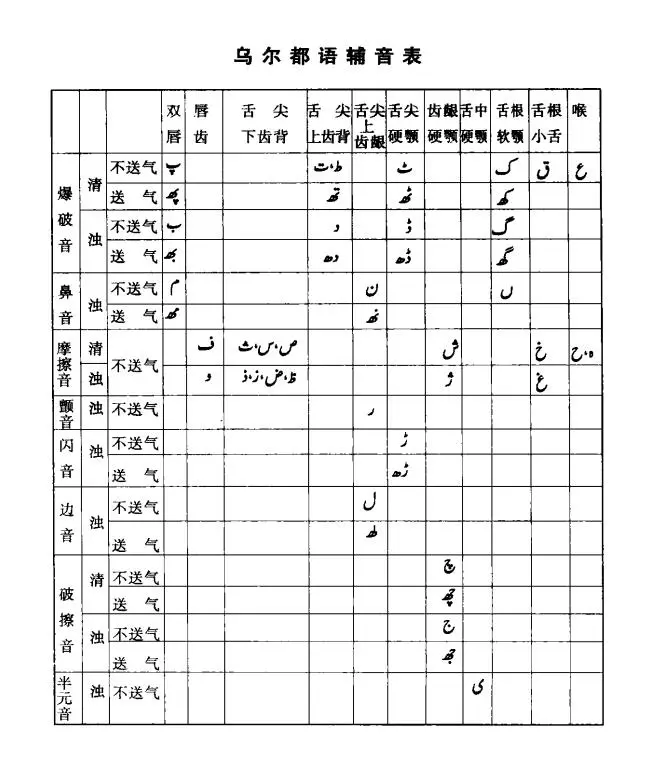 乌尔都语辅音表
双唇 唇齿 舌尖下齿背 舌尖上齿背 舌尖上齿龈 舌尖硬颚 齿龈硬颚 舌中硬颚 舌根软颚 舌根小舌 喉
爆破音 清 不送气 پ ط،ت ٹ ک ق ع
送气 پھ تھ ٹھ کھ
浊 不送气 ب د ڈ گ
送气 بھ دھ ڈھ گھ
鼻音 浊 不送气 م ن ں
送气 مھ نھ
摩擦音 清 不送气 ف ص،س،ث ش خ ہ،ح
浊 و ظ،ض،ز،ذ ژ غ
颤音 浊 不送气 ر
闪音 浊 不送气 ڑ
送气 ڑھ
边音 浊 不送气 ل
送气 لھ
破擦音 清 不送气 چ
送气 چھ
浊 不送气 ج
送气 جھ
半元音 浊 不送气 ی